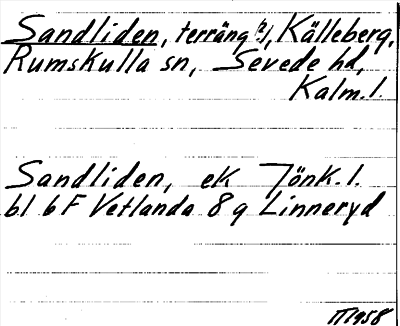 Sandliden, terräng (?), Källeberg,
Rumskulla sn, Sevede hd,
Kalm.l.
Sandliden, ek Jönk.l.
bl 6F Vetlanda 8g Linneryd
1958